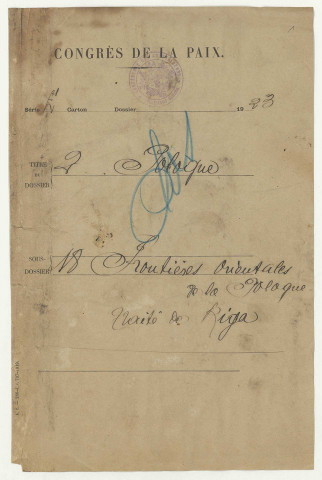 CONGRÈS DE LA PAIX.
Série Carton Dossier 1923
TITRE du DOSSIER 2. Pologne
SOUS-DOSSIER 18 Frontières orientales
de la Pologne
Traité de Riga